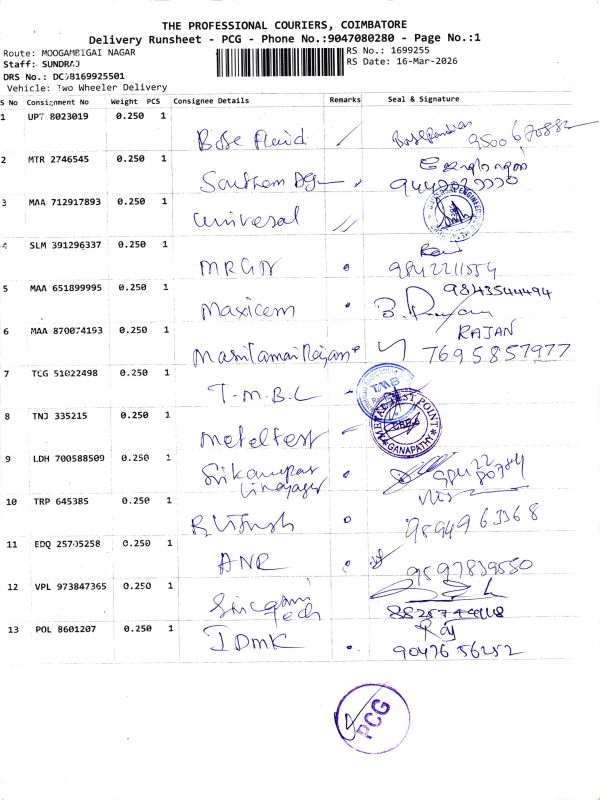 THE PROFESSIONAL COURIERS, COIMBATORE
Delivery Runsheet - PCG - Phone No.:9047080280 - Page No.:1
Route: MOOGAMBIGAI NAGAR
RS No.: 1699255
Staff: SUNDRAJ
RS Date: 16-Mar-2026
DRS No.: DC 8169925501
Vehicle: Two Wheeler Delivery
S No Consignment No Weight PCS Consignee Details Remarks Seal & Signature
1 UPT 8023019 0.250 1
Bose Fluid
2 MTR 2746545 0.250 1
Southern
3 MAA 712917893 0.250 1
Universal
4 SLM 391296337 0.250 1
MRGN 9842211554
5 MAA 651899995 0.250 1
Maxicem 9843544494
6 MAA 870074193 0.250 1
RAJAN
7695857977
7 TCG 51022498 0.250 1
T.M.B.L TMB
8 TNJ 335215 0.250 1
Metal test METAL TEST POINT GANAPATHY
9 LDH 700588509 0.250 1
10 TRP 645385 0.250 1
9894963368
11 EDQ 25705258 0.250 1
ANR 9597839550
12 VPL 973847365 0.250 1
Tech
13 POL 8601207 0.250 1
IDMK Raj
9047656252
PCG